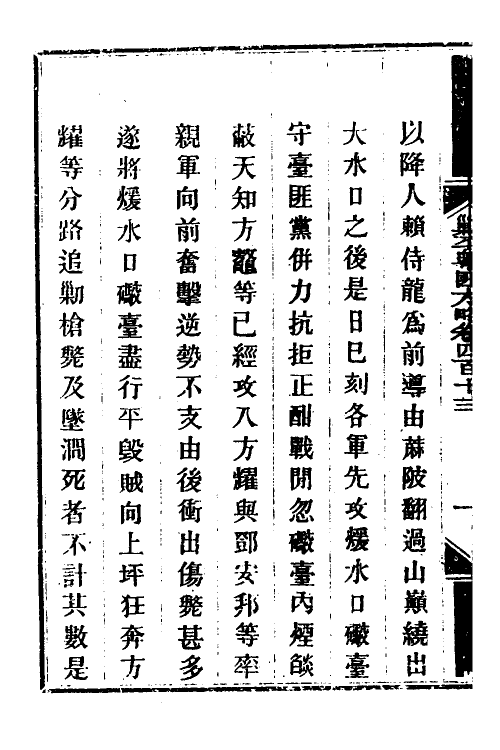 以降人賴侍龍為前導由蔴陂翻過山巔繞出
大水口之後是日巳刻各軍先攻煖水口礮臺
守臺匪黨併力抗拒正酣戰閒忽礮臺內煙燄
蔽天知方鼇等已經攻入方耀與鄧安邦等率
親軍向前奮擊逆勢不支由後衝出傷斃甚多
遂將煖水口礮臺盡行平毀賊向上坪狂奔方
耀等分路追勦槍斃及墜澗死者不計其數是
卷四百十三
一